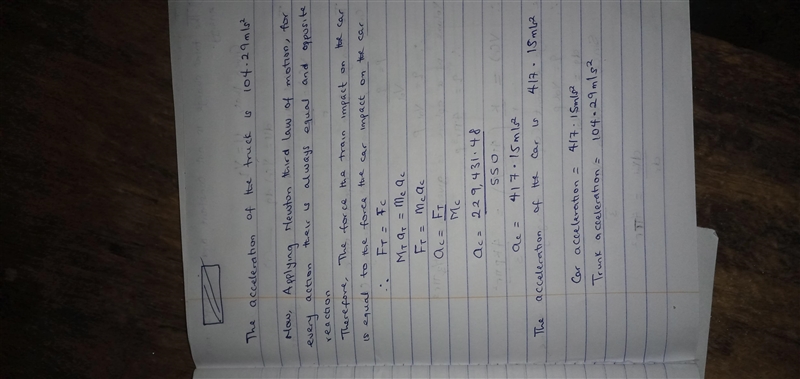 The acceleration of the truck is 104.29m/s²
Now, Applying Newton third law of motion, for
every action there is always equal and opposite
reaction
Therefore, The force the train impact on the car
is equal to the force the car impact on the car
∴ F_T = F_C
M_T a_T = M_C a_C
F_T = M_C a_C
a_C = F_T
M_C
a_C = 229,431.48
550
a_C = 417.15m/s²
The acceleration of the car is 417.15m/s²
Car acceleration = 417.15m/s²
Trunk acceleration = 104.29m/s²